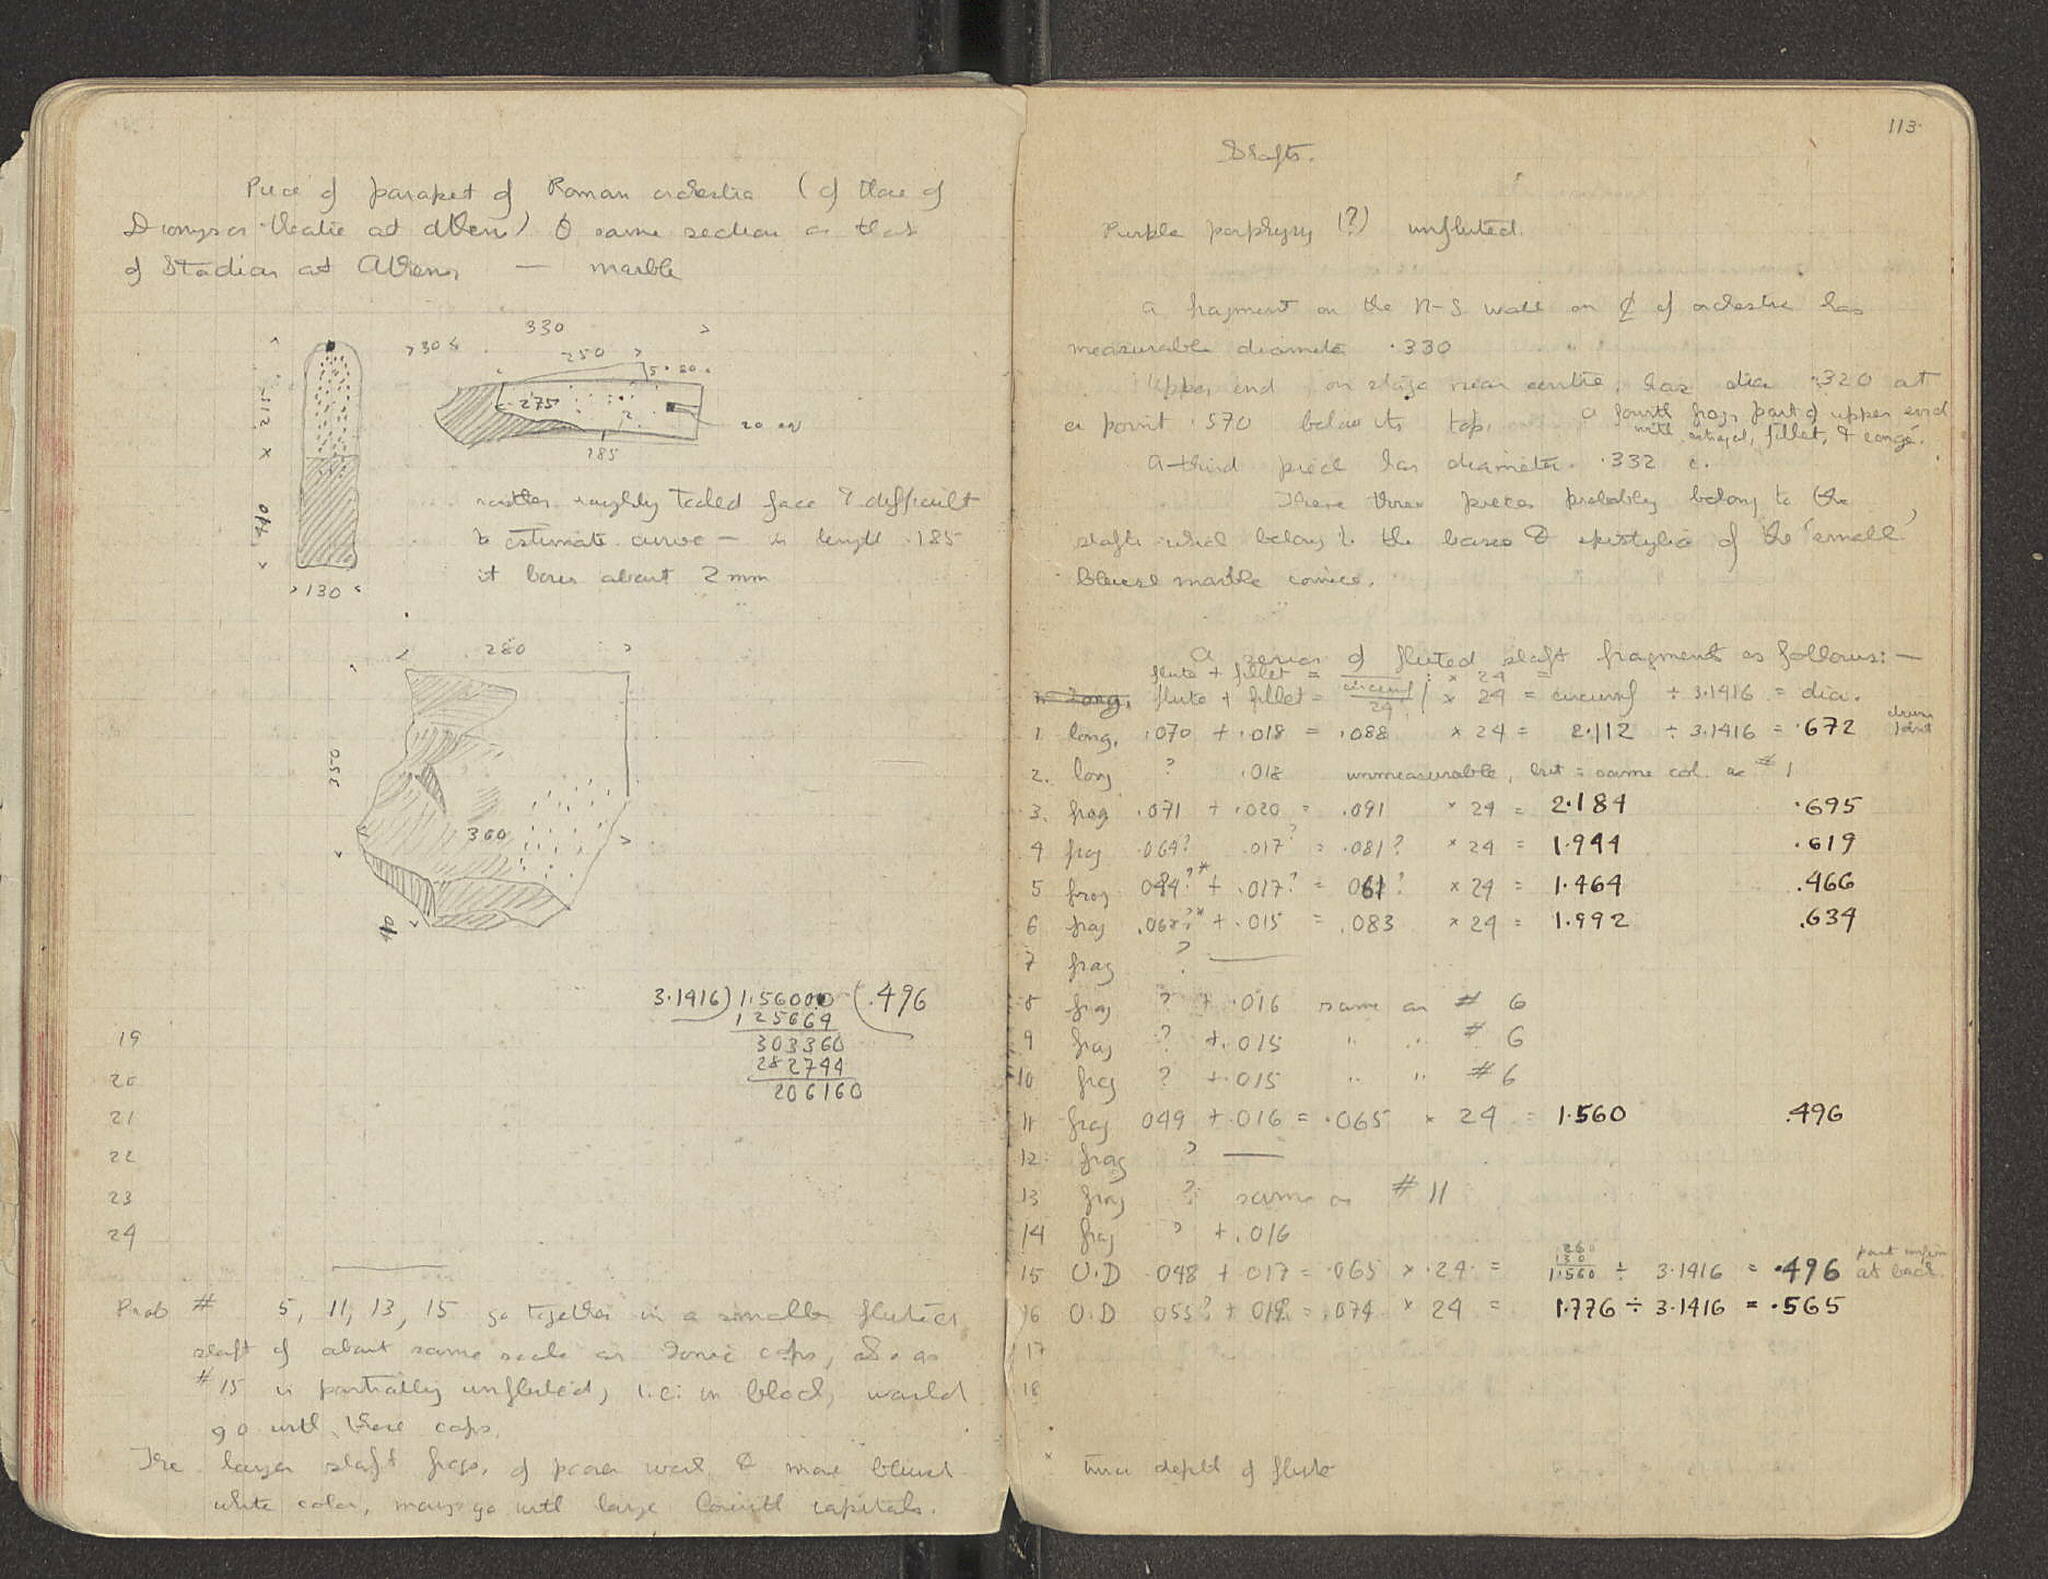 Piece of parapet of Roman orchestra (cf those of
Dionysos theatre at Athens) & same section as that
of Stadion at Athens — marble
330
30
250
5 20
275
2
20
185
.215 x
130
rather roughly tooled face & difficult
to estimate curve — in length .185
it bows about 2 mm
280
.250
360
3.1416) 1.56000 (.496
125664
303360
282744
206160
19
20
21
22
23
24
Prob # 5, 11, 13, 15 go together in a smaller fluted
shaft of about same scale as Ionic caps, & as
#15 is partially unfluted, i.e. in block, would
go with these caps.
The larger shaft frags. of poorer work & more blueish
white color, may go with large Corinth capitals.
113.
Shafts.
Purple porphyry (?) unfluted.
A fragment on the N-S wall on ₵ of orchestra has
measurable diameter .330
Upper end, on stage near centre, has dia .320 at
a point .570 below its top. A fourth frag, part of upper end
with astragal, fillet, & congé.
A third piece has diameter .332 c.
These three pieces probably belong to the
shafts which belong to the bases & epistylia of the 'small'
blueish marble cornice.
A series of fluted shaft fragments as follows: —
flute + fillet = × 24 =
flute + fillet = circumf/24 × 24 = circumf ÷ 3.1416 = dia.
1 long. .070 + .018 = .088 × 24 = 2.112 ÷ 3.1416 = .672 drum joint
2. long ? .018 unmeasurable, but = same col. as #1
3. frag .071 + .020 = .091 × 24 = 2.184 .695
4 frag .064? .017? = .081? × 24 = 1.944 .619
5 frag 044?* + .017? = 061? × 24 = 1.464 .466
6 frag .068?* + .015 = .083 × 24 = 1.992 .634
7 frag ? —
8 frag ? + .016 same as # 6
9 frag ? + .015 " " # 6
10 frag ? + .015 " " # 6
11 frag 049 + .016 = .065 × 24 = 1.560 .496
12 frag ? —
13 frag ? same as # 11
14 frag ? + .016
260
130
15 O.D .048 + 017 = .065 × 24 = 1.560 ÷ 3.1416 = .496 part unfin at back.
16 O.D 055? + 019? = .074 × 24 = 1.776 ÷ 3.1416 = .565
17
18
× twice depth of flute